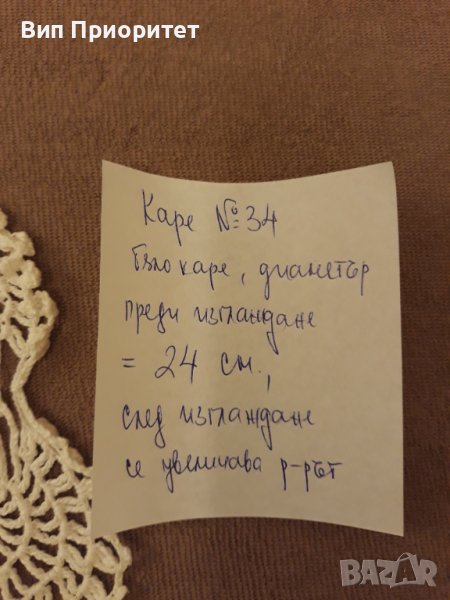 Вип Приоритет
Каре №34
бяло каре, диаметър
преди изглаждане
= 24 см.,
след изглаждане
се увеличава р-рът
BAZAR